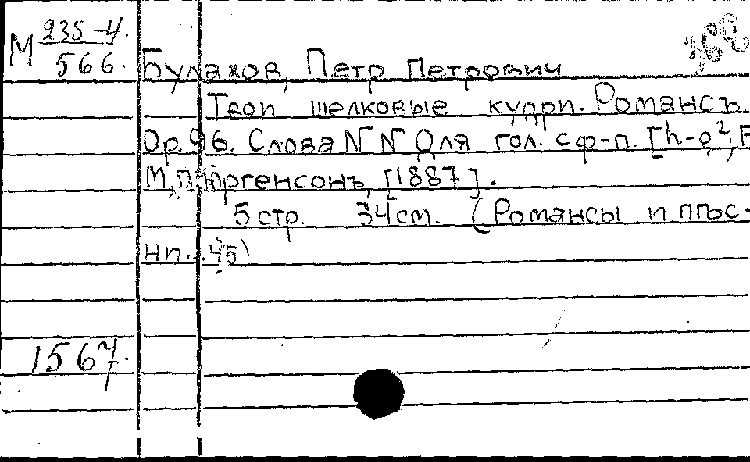 М 235-4
566.
Булахов, Петр Петрович
Твои шелковые кудри. Романсъ.
Op. 96. Слова N N Для гол. с ф-п. [h-
М, П. Юргенсонъ, [1887].
5 стр. 34 см. (Романсы и пѣс-
ни. 45)
1567.